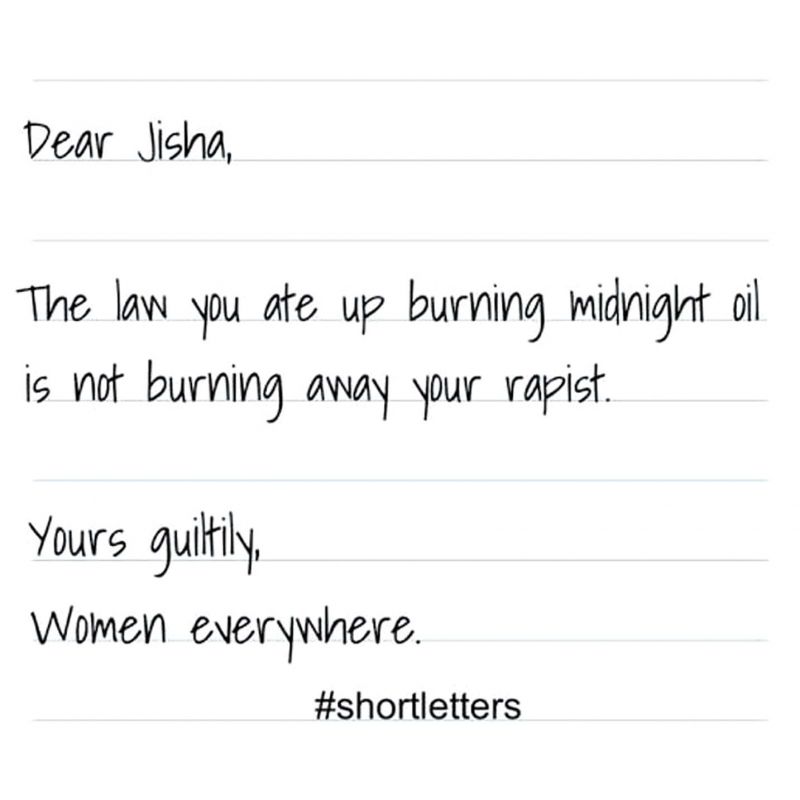 Dear Jisha,
The law you ate up burning midnight oil
is not burning away your rapist.
Yours guiltily,
Women everywhere.
#shortletters